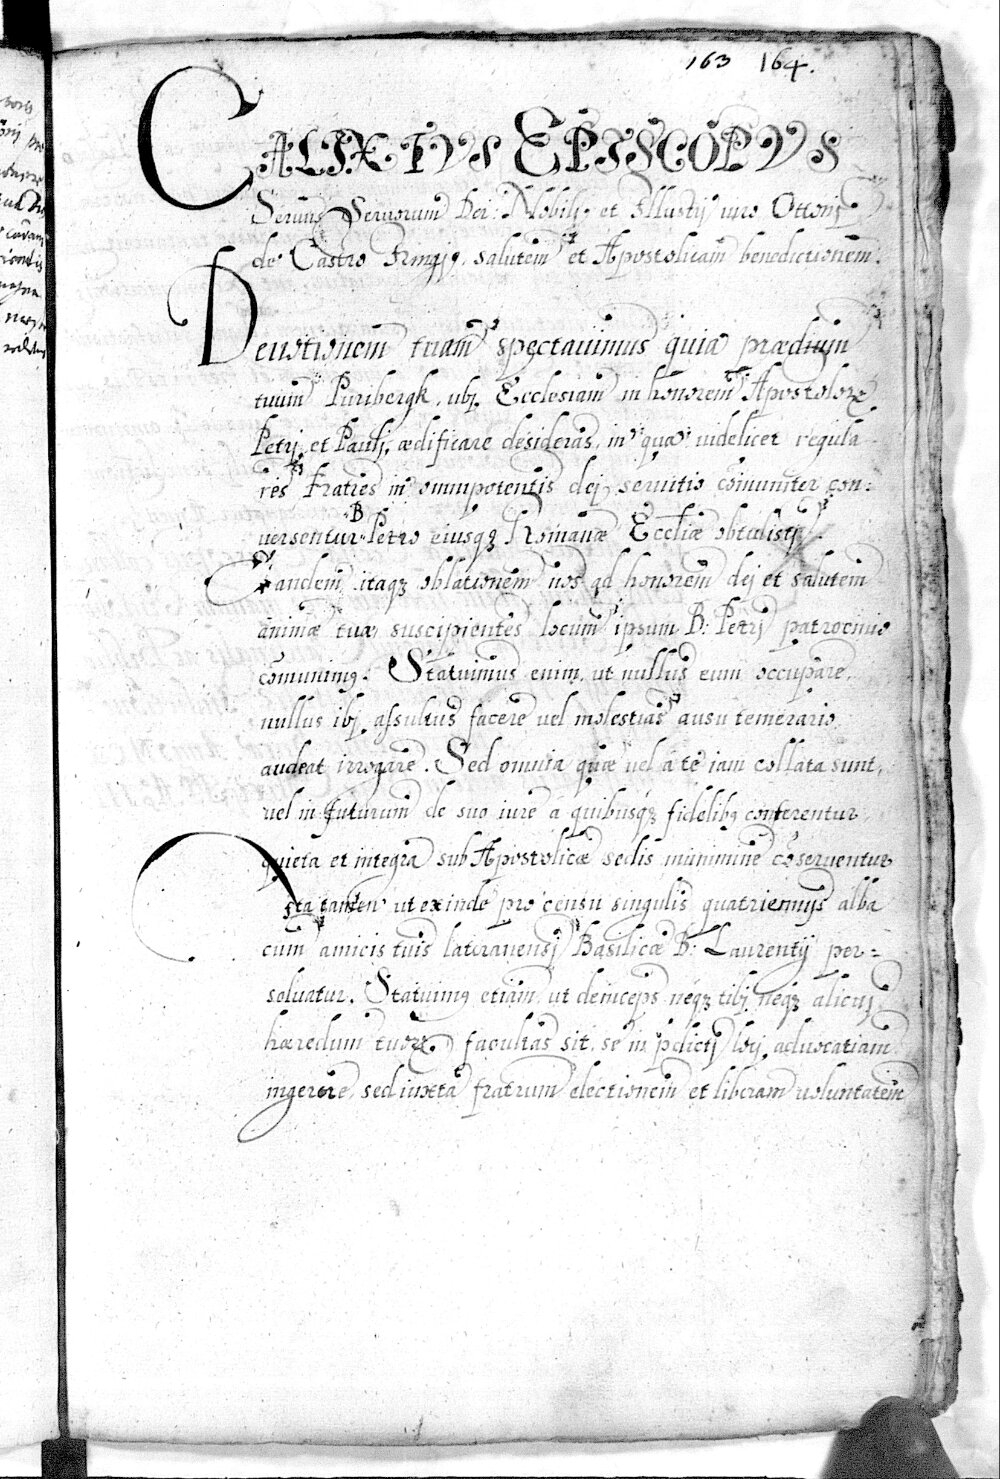 163 164.
CALIXTVS EPISCOPVS
Seruus Seruorum Dei: Nobilj et Illustrj uiro Ottonj
de Castro Iringj, salutem et Apostolicam benedictionem.
Deuotionem tuam spectauimus quia prædium
tuum Puribergk, ubj Ecclesiam in honorem Apostolorꝝ
Petrj et Paulj, ædificare desideras, in qua uidelicet regula-
res Fratres in omnipotentis dej seruitio comuniter con:
uersentur B Petro eiusqꝫ Romanæ Eccliæ obtulistj.
Eandem itaqꝫ oblationem nos ad honorem dej et salutem
animæ tuæ suscipientes locum ipsum B: Petrj patrocinio
comunimꝰ. Statuimus enim, ut nullus eum occupare,
nullus ibj assultus facere uel molestias ausu temerario
audeat irrogare. Sed omnia quæ uel a te iam collata sunt,
uel in futurum de suo iure a quibusqꝫ fidelibꝰ conferentur
quieta et integra sub Apostolicæ sedis munimine coseruentur
Ita tamen ut exinde pro censu singulis quatriennijs alba
cum amicis tuis lateranensj Basilicæ B: Laurentij per-
soluatur. Statuimꝰ etiam, ut deinceps neqꝫ tibj neqꝫ alicuj
hæredum tuorꝝ facultas sit, se in pdictj locj aduocatiam
ingerere, sed iuxta fratrum electionem et liberam uoluntatem